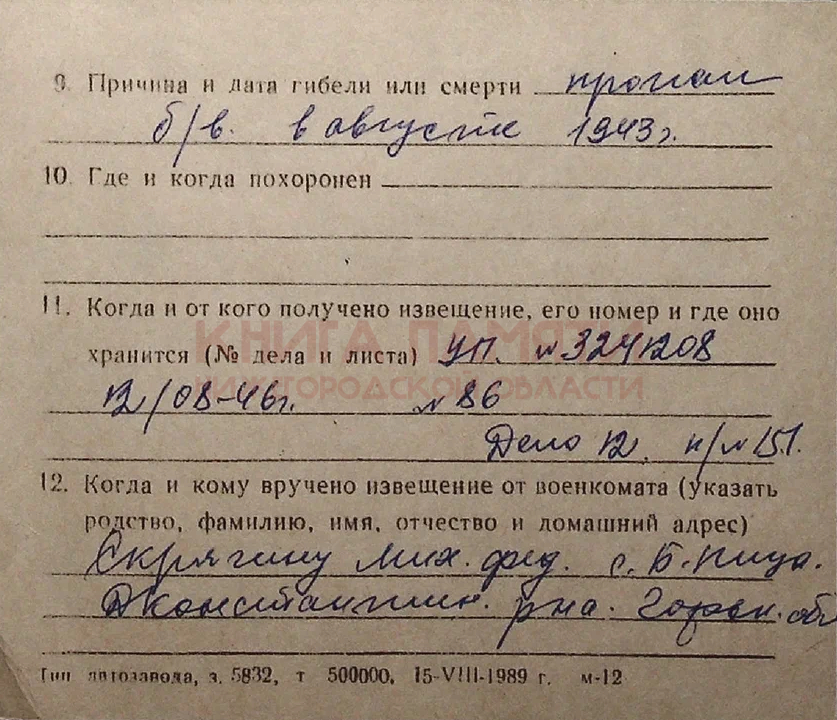 9. Причина и дата гибели или смерти пропал
б/в. в августе 1943г.
10. Где и когда похоронен
11. Когда и от кого получено извещение, его номер и где оно
КНИГА ПАМЯТИ
хранится (№ дела и листа) УП. №3241208
НИЖЕГОРОДСКОЙ ОБЛАСТИ
12/08-46г. №86
Дело 12. н/№151.
12. Когда и кому вручено извещение от военкомата (указать
родство, фамилию, имя, отчество и домашний адрес)
Скрягину Мих. Фед. с. Б. Пица.
Дконстантин. р-на. Горьк. обл
Тип автозавода, з. 5832, т 500000, 15-VIII-1989 г. м-12